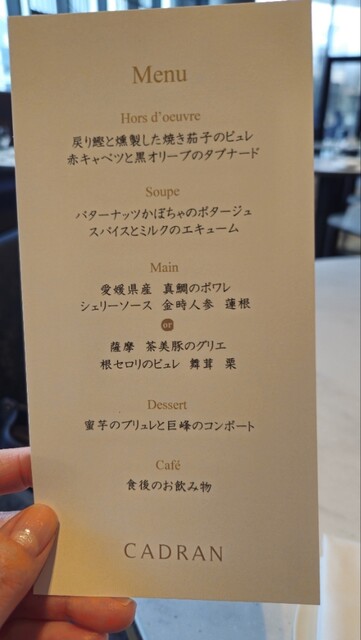 Menu
Hors d'oeuvre
戻り鰹と燻製した焼き茄子のピュレ
赤キャベツと黒オリーブのタプナード
Soupe
バターナッツかぼちゃのポタージュ
スパイスとミルクのエキューム
Main
愛媛県産 真鯛のポワレ
シェリーソース 金時人参 蓮根
or
薩摩 茶美豚のグリエ
根セロリのピュレ 舞茸 栗
Dessert
蜜芋のブリュレと巨峰のコンポート
Café
食後のお飲み物
CADRAN